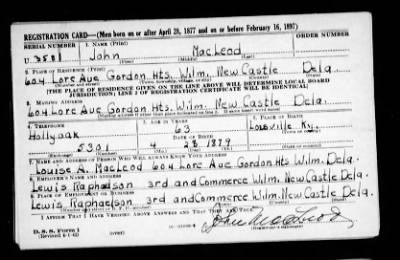 REGISTRATION CARD—(Men born on or after April 28, 1877 and on or before February 16, 1897)
SERIAL NUMBER 1. NAME (Print) ORDER NUMBER
U 3581 John MacLeod
2. PLACE OF RESIDENCE (Print)
604 Lore Ave Gordon Hts. Wilm. New Castle Dela.
[THE PLACE OF RESIDENCE GIVEN ON THE LINE ABOVE WILL DETERMINE LOCAL BOARD
JURISDICTION; LINE 2 OF REGISTRATION CERTIFICATE WILL BE IDENTICAL]
3. MAILING ADDRESS
604 Lore Ave Gordon Hts. Wilm. New Castle Dela.
4. TELEPHONE 5. AGE IN YEARS 6. PLACE OF BIRTH
Hollyoak 63 Louisville Ky.
DATE OF BIRTH
5301 4 28 1879
7. NAME AND ADDRESS OF PERSON WHO WILL ALWAYS KNOW YOUR ADDRESS
Louise A. MacLeod 604 Lore Ave Gordon Hts. Wilm. Dela.
8. EMPLOYER'S NAME AND ADDRESS
Lewis Raphaelson 3rd and Commerce Wilm. New Castle Dela.
9. PLACE OF EMPLOYMENT OR BUSINESS
Lewis Raphaelson 3rd and Commerce Wilm. New Castle Dela.
I AFFIRM THAT I HAVE VERIFIED ABOVE ANSWERS AND THAT THEY ARE TRUE.
D. S. S. Form 1
(Revised 4-1-42)
John MacLeod